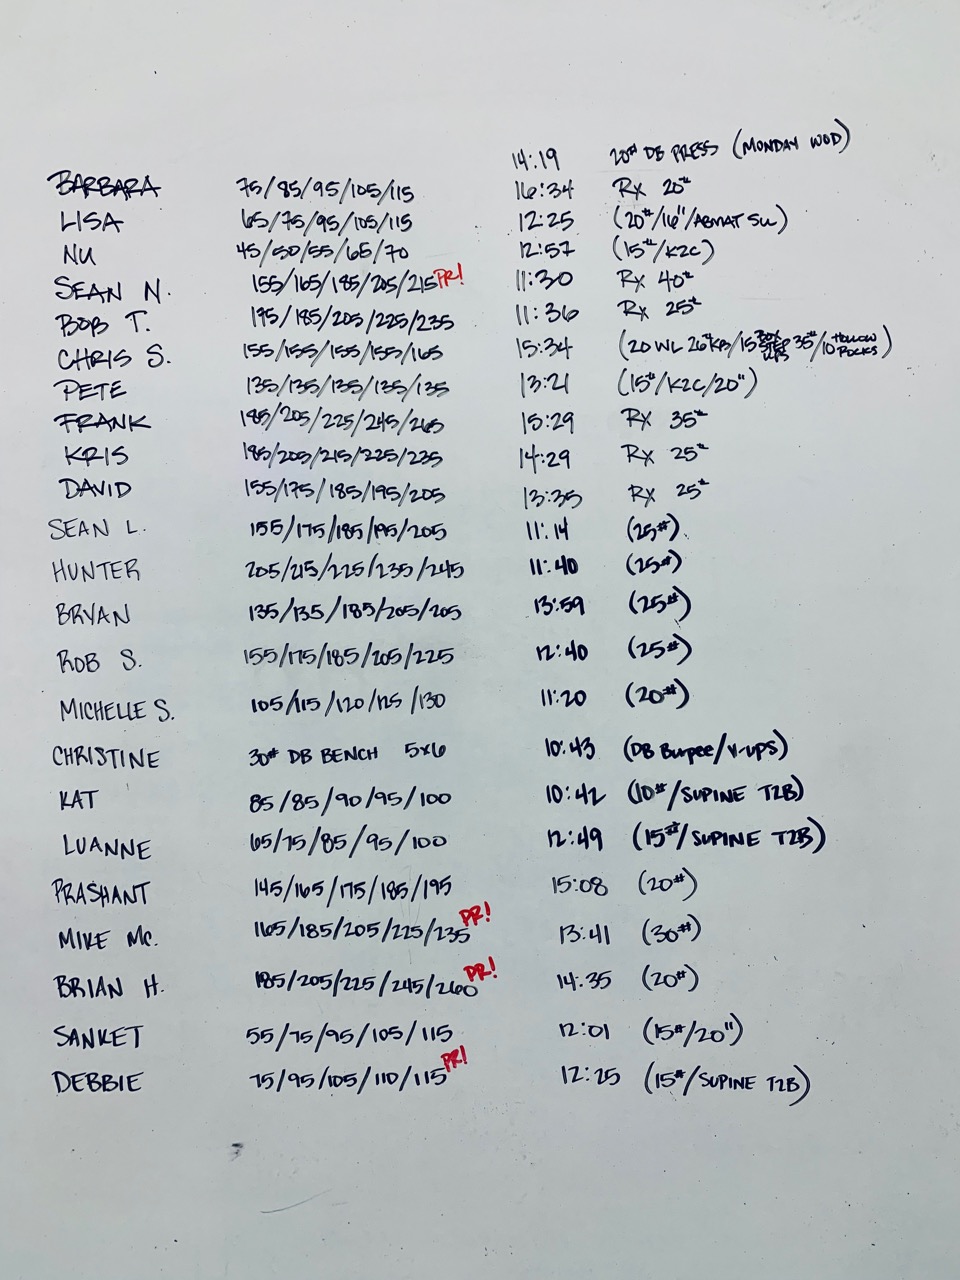 14:19 20# DB PRESS (MONDAY WOD)
BARBARA 75/85/95/105/115 16:34 Rx 20#
LISA 65/75/95/105/115 12:25 (20#/16"/ABMAT SU)
NU 45/50/55/65/70 12:57 (15#/K2C)
SEAN N. 155/165/185/205/215 PR! 11:30 Rx 40#
BOB T. 175/185/205/225/235 11:36 Rx 25#
CHRIS S. 155/155/155/155/165 15:34 (20 WL 26#KB/15 BOX STEP UPS 35#/10 HOLLOW ROCKS)
PETE 135/135/135/135/135 13:21 (15#/K2C/20")
FRANK 185/205/225/245/265 15:29 Rx 35#
KRIS 185/205/215/225/235 14:29 Rx 25#
DAVID 155/175/185/195/205 13:35 Rx 25#
SEAN L. 155/175/185/195/205 11:14 (25#)
HUNTER 205/215/225/235/245 11:40 (25#)
BRYAN 135/135/185/205/205 13:59 (25#)
ROB S. 155/175/185/205/225 12:40 (25#)
MICHELLE S. 105/115/120/125/130 11:20 (20#)
CHRISTINE 30# DB BENCH 5x6 10:43 (DB Burpee/V-UPS)
KAT 85/85/90/95/100 10:42 (10#/SUPINE T2B)
LUANNE 65/75/85/95/100 12:49 (15#/SUPINE T2B)
PRASHANT 145/165/175/185/195 15:08 (20#)
MIKE MC. 165/185/205/225/235 PR! 13:41 (30#)
BRIAN H. 185/205/225/245/260 PR! 14:35 (20#)
SANKET 55/75/95/105/115 12:01 (15#/20")
DEBBIE 75/95/105/110/115 PR! 12:25 (15#/SUPINE T2B)